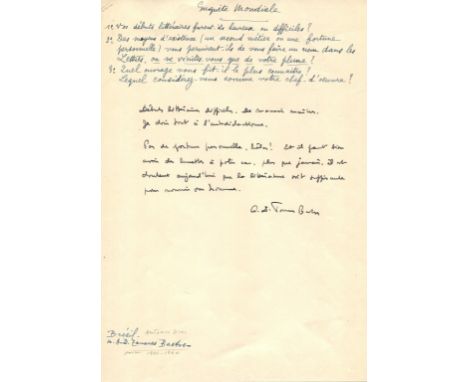 Enquête Mondiale
1º. Vos débuts littéraires furent-ils heureux ou difficiles ?
2º. Des moyens d'existence (un second métier ou une fortune
personnelle) vous permirent-ils de vous faire un nom dans les
Lettres, ou ne vécûtes-vous que de votre plume ?
3º. Quel ouvrage vous fit-il le plus connaître ?
Lequel considérez-vous comme votre chef-d'œuvre ?
Débuts littéraires difficiles.
Je dois tout à l'autodidactisme.
Pas de fortune personnelle, hélas ! Et il faut bien
avoir de plus que jamais, il est
douteux aujourd'hui que la littérature soit suffisante
pour nourrir un homme.
Brésil.
A.D. Tavares Bastos